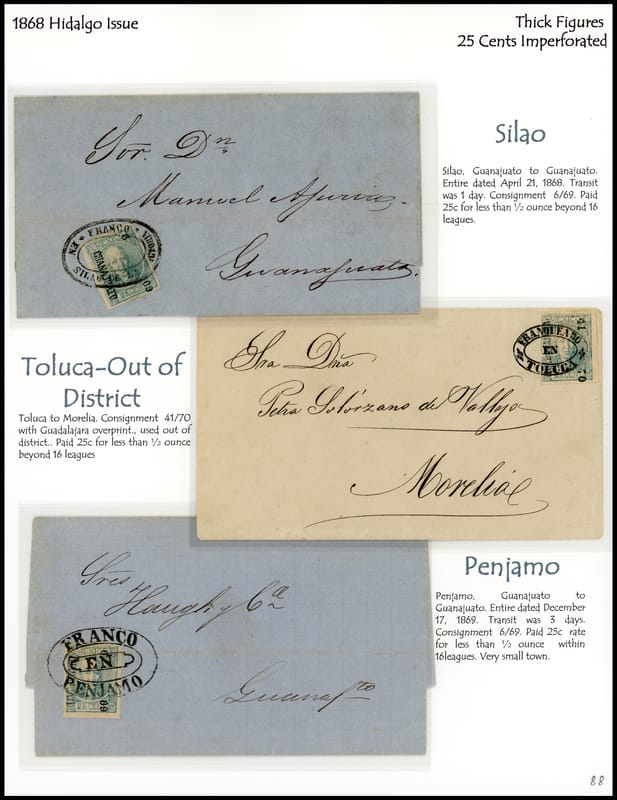 1868 Hidalgo Issue
Thick Figures
25 Cents Imperforated
Silao
Silao, Guanajuato to Guanajuato.
Entire dated April 21, 1868. Transit
was 1 day. Consignment 6/69. Paid
25c for less than ½ ounce beyond 16
leagues.
Sor. Dn
Manuel
Guanajuato.
FRANCO
EN SILAO
GUANAJUATO
69
Toluca-Out of
District
Toluca to Morelia. Consignment 41/70
with Guadalajara overprint., used out of
district.. Paid 25c for less than ½ ounce
beyond 16 leagues
FRANQUEADO
EN
TOLUCA
Sra Dña
Petra Solórzano de Vallejo
Morelia
Penjamo
Penjamo, Guanajuato to
Guanajuato. Entire dated December
17, 1869. Transit was 3 days.
Consignment 6/69. Paid 25c rate
for less than ½ ounce within
16leagues. Very small town.
Sres
Haugh y Ca
Guanajto
FRANCO
EN
PENJAMO
69
88